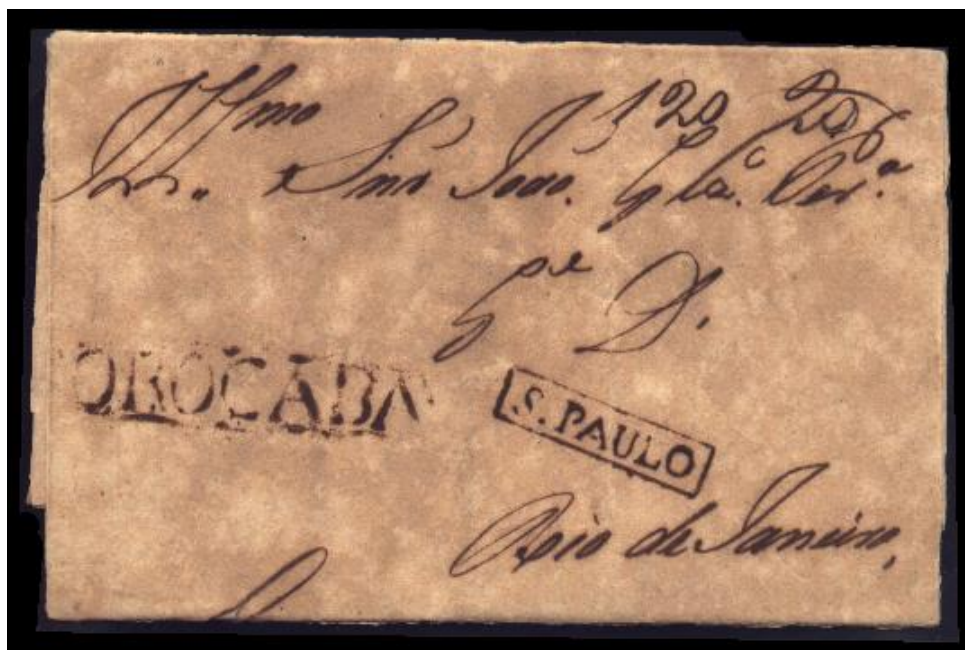 Illmo 120 20
Snr. Snr João Glz. Per.ª
G.de D.
OROCABA
S. PAULO
Rio de Janeiro,